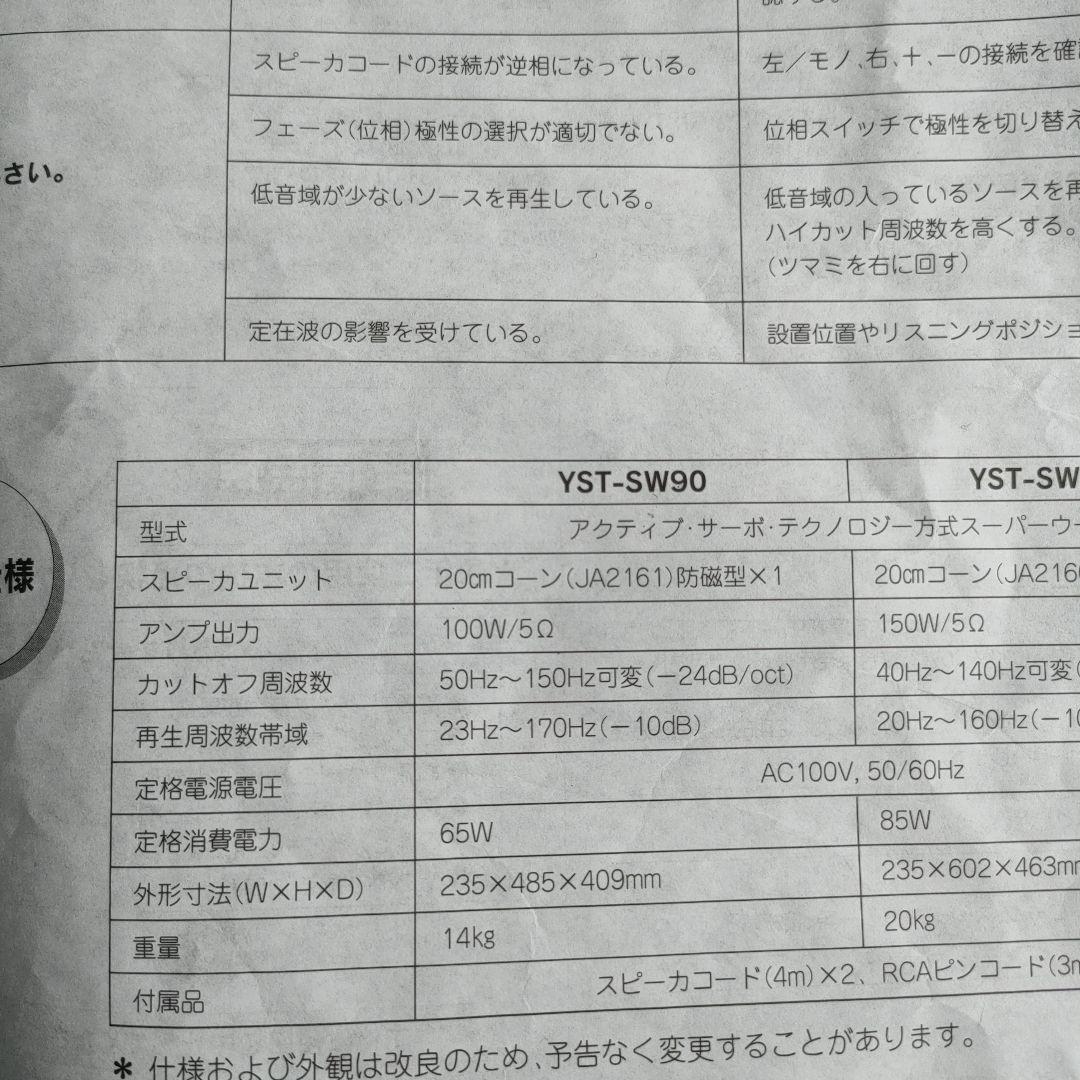 スピーカコードの接続が逆相になっている。
左／モノ、右、＋、－の接続を確
フェーズ（位相）極性の選択が適切でない。
位相スイッチで極性を切り替え
さい。
低音域が少ないソースを再生している。
低音域の入っているソースを再
ハイカット周波数を高くする。
（ツマミを右に回す）
定在波の影響を受けている。
設置位置やリスニングポジショ
様
YST-SW90 YST-SW
型式 アクティブ・サーボ・テクノロジー方式スーパーウ
スピーカユニット 20cmコーン（JA2161）防磁型×1 20cmコーン（JA216
アンプ出力 100W/5Ω 150W/5Ω
カットオフ周波数 50Hz～150Hz可変（－24dB/oct） 40Hz～140Hz可変（
再生周波数帯域 23Hz～170Hz（－10dB） 20Hz～160Hz（－10
定格電源電圧 AC100V, 50/60Hz
定格消費電力 65W 85W
外形寸法（W×H×D） 235×485×409mm 235×602×463mm
重量 14kg 20kg
付属品 スピーカコード（4m）×2、RCAピンコード（3m
＊ 仕様および外観は改良のため、予告なく変更することがあります。